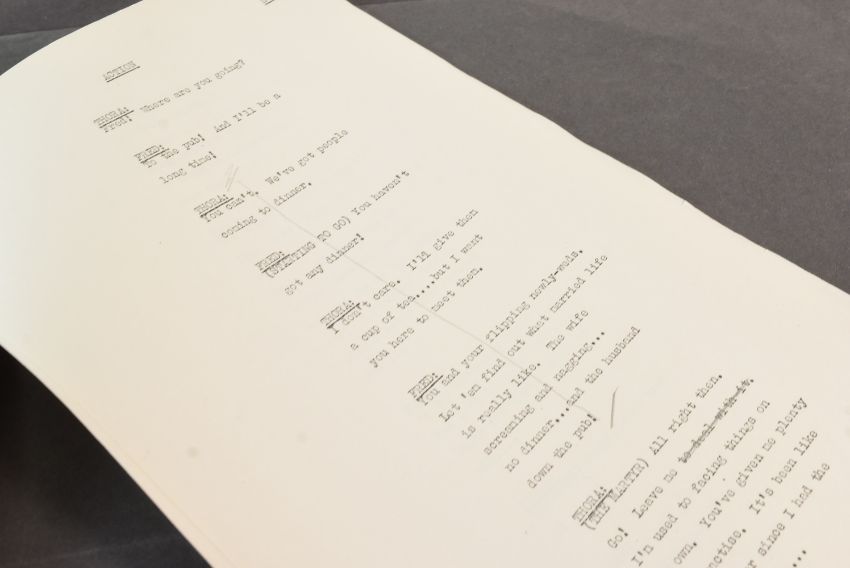 ACTION
THORA:
Fred! Where are you going?
FRED:
To the pub! And I'll be a
long time!
THORA:
You can't. We've got people
coming to dinner.
FRED:
(STARTING TO GO) You haven't
got any dinner!
THORA:
I don't care. I'll give them
a cup of tea....but I want
you here to meet them.
FRED:
You and your flipping newly-weds.
Let 'em find out what married life
is really like. The wife
screaming and nagging...
no dinner...and the husband
down the pub!
THORA:
(THE MARTYR) All right then.
Go! Leave me to deal with it.
I'm used to facing things on
own. You've given me plenty
It's been like
since I had the
...